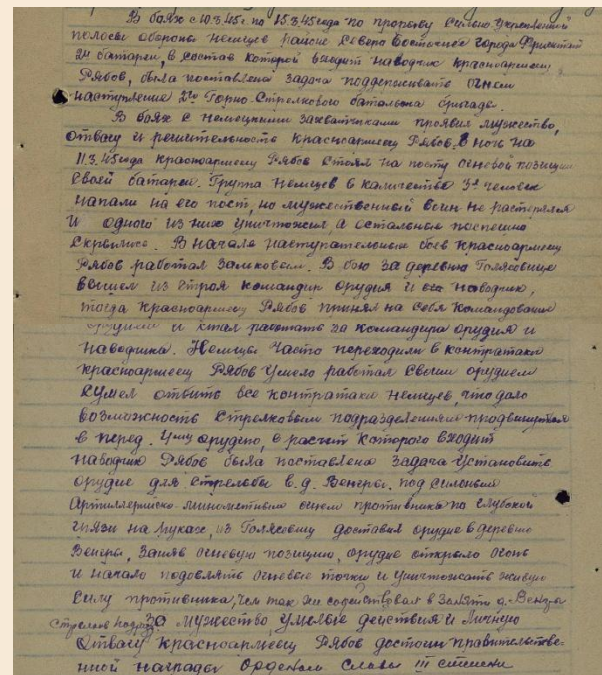 В боях с 10.3.45г. по 15.3.45года по прорыву сильно укрепленной
полосы обороны немцев районе Северо Восточнее города
2ой батареи, в состав которой входит наводчик красноармеец
Рябов, была поставлена задача поддерживать огнем
наступление 2го Горно-Стрелкового батальона бригады.
В боях с немецкими захватчиками проявил мужество,
отвагу и решительность красноармеец Рябов. В ночь на
11.3.45года красноармеец Рябов стоял на посту огневой позиции
своей батареи. Группа немцев в количестве 3х человек
напали на его пост, но мужественный воин не растерялся
и одного из них уничтожил, а остальные поспешно
скрылись. В начале наступательных боев красноармеец
Рябов работал замковым. В бою за деревню
вышел из строя командир орудия и наводчик,
тогда красноармеец Рябов принял на себя командование
орудием и стал работать за командира орудия и
наводчика. Немцы часто переходили в контратаки
красноармеец Рябов умело работал своим орудием
сумел отбить все контратаки немцев, что дало
возможность стрелковым подразделениям продвинуться
в перед. орудию, в расчет которого входит
наводчик Рябов была поставлена задача установить
орудие для стрельбы в.д. Венгры. под сильным
Артиллерийско-минометным огнем противника по глубокой
грязи на руках, из доставил орудие в деревню
Венгры, Заняв огневую позицию, орудие открыло огонь
и начало подовлять огневые точки и уничтожать живую
силу противника, чем так же содействовал в занятии д. Венгры
За мужество, умелые действия и личную
отвагу красноармеец Рябов достоин правительстве-
нной награды Орденом Славы III степени